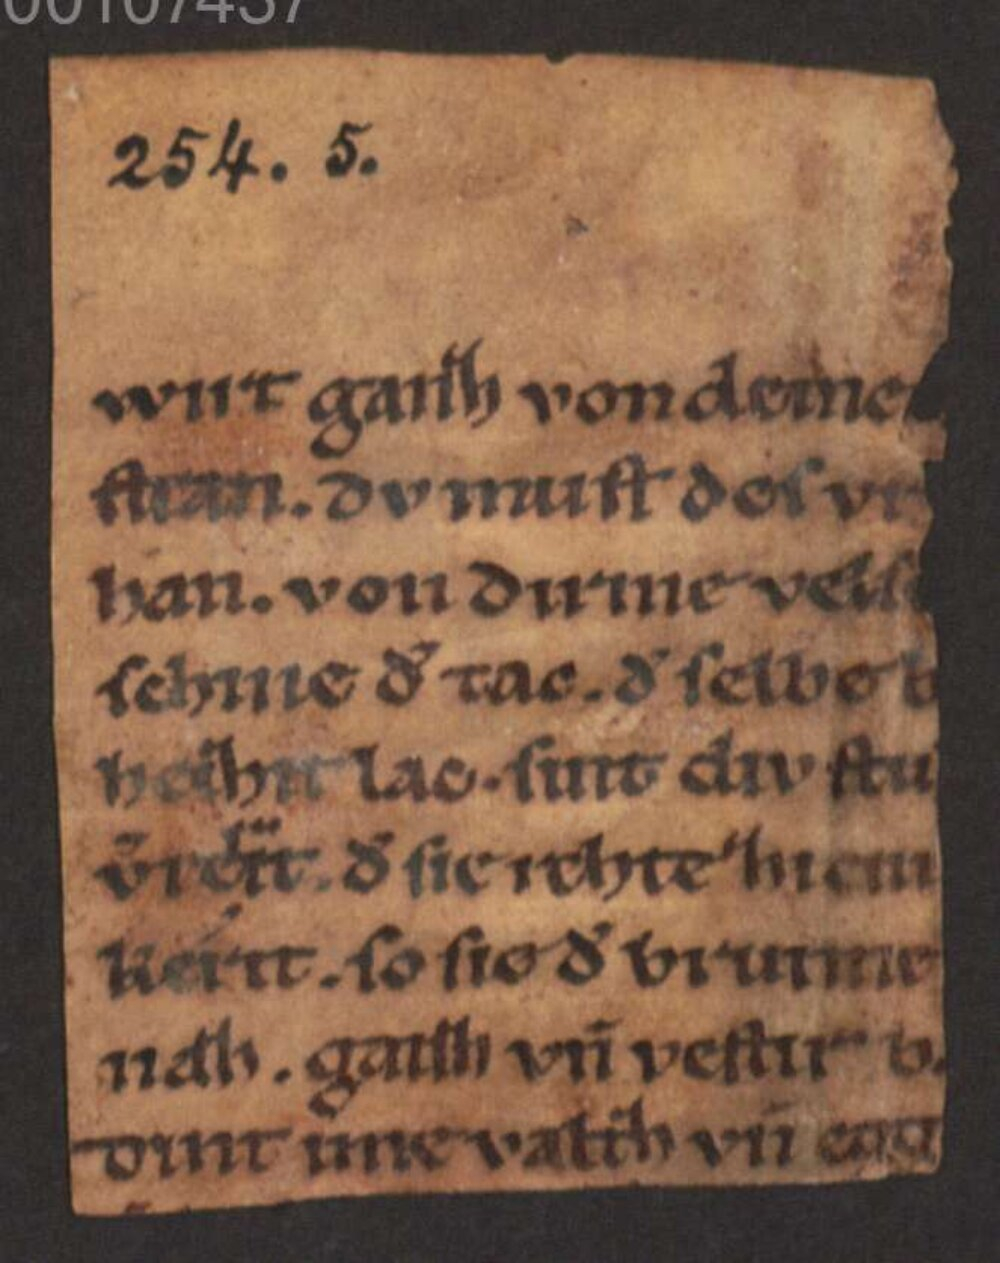 00107437
254. 5.
wirt ganzh von deme
stran. dv muist des vr
han. von dirme vels
schine d̓ tac. d̓ selbe b
heizhit lac. sint div stu
v̄rerit. d̓ sie rehte hiem
kerit. so sie d̓ brunne
nazh. ganzh vn̄ vestir b
wirt ime valtzh vn̄ egg